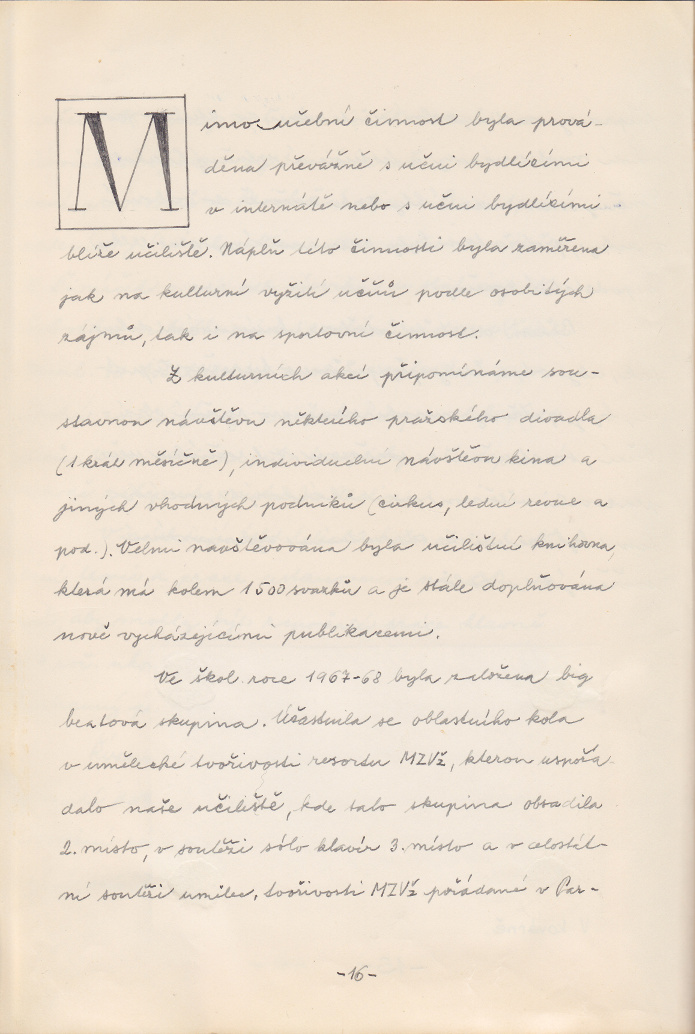 Mimo učební činnost byla prová-
děna převážně s učni bydlícími
v internátě nebo s učni bydlícími
blíže učiliště. Náplň této činnosti byla zaměřena
jak na kulturní vyžití učňů podle osobitých
zájmů, tak i na sportovní činnost.
Z kulturních akcí připomínáme sou-
stavnou návštěvu některého pražského divadla
(1 krát měsíčně), individuelní návštěvu kina a
jiných vhodných podniků (cirkus, lední revue a
pod.). Velmi navštěvována byla učilištní knihovna,
která má kolem 1500 svazků a je stále doplňována
nově vycházejícími publikacemi.
Ve škol. roce 1967-68 byla založena big
beatová skupina. Účastnila se oblastního kola
v umělecké tvořivosti resortu MZVž, kterou uspořá-
dalo naše učiliště, kde tato skupina obsadila
2. místo, v soutěži sólo klavír 3. místo a v celostát-
ní soutěži umělec. tvořivosti MZVž pořádané v Par-
-16-